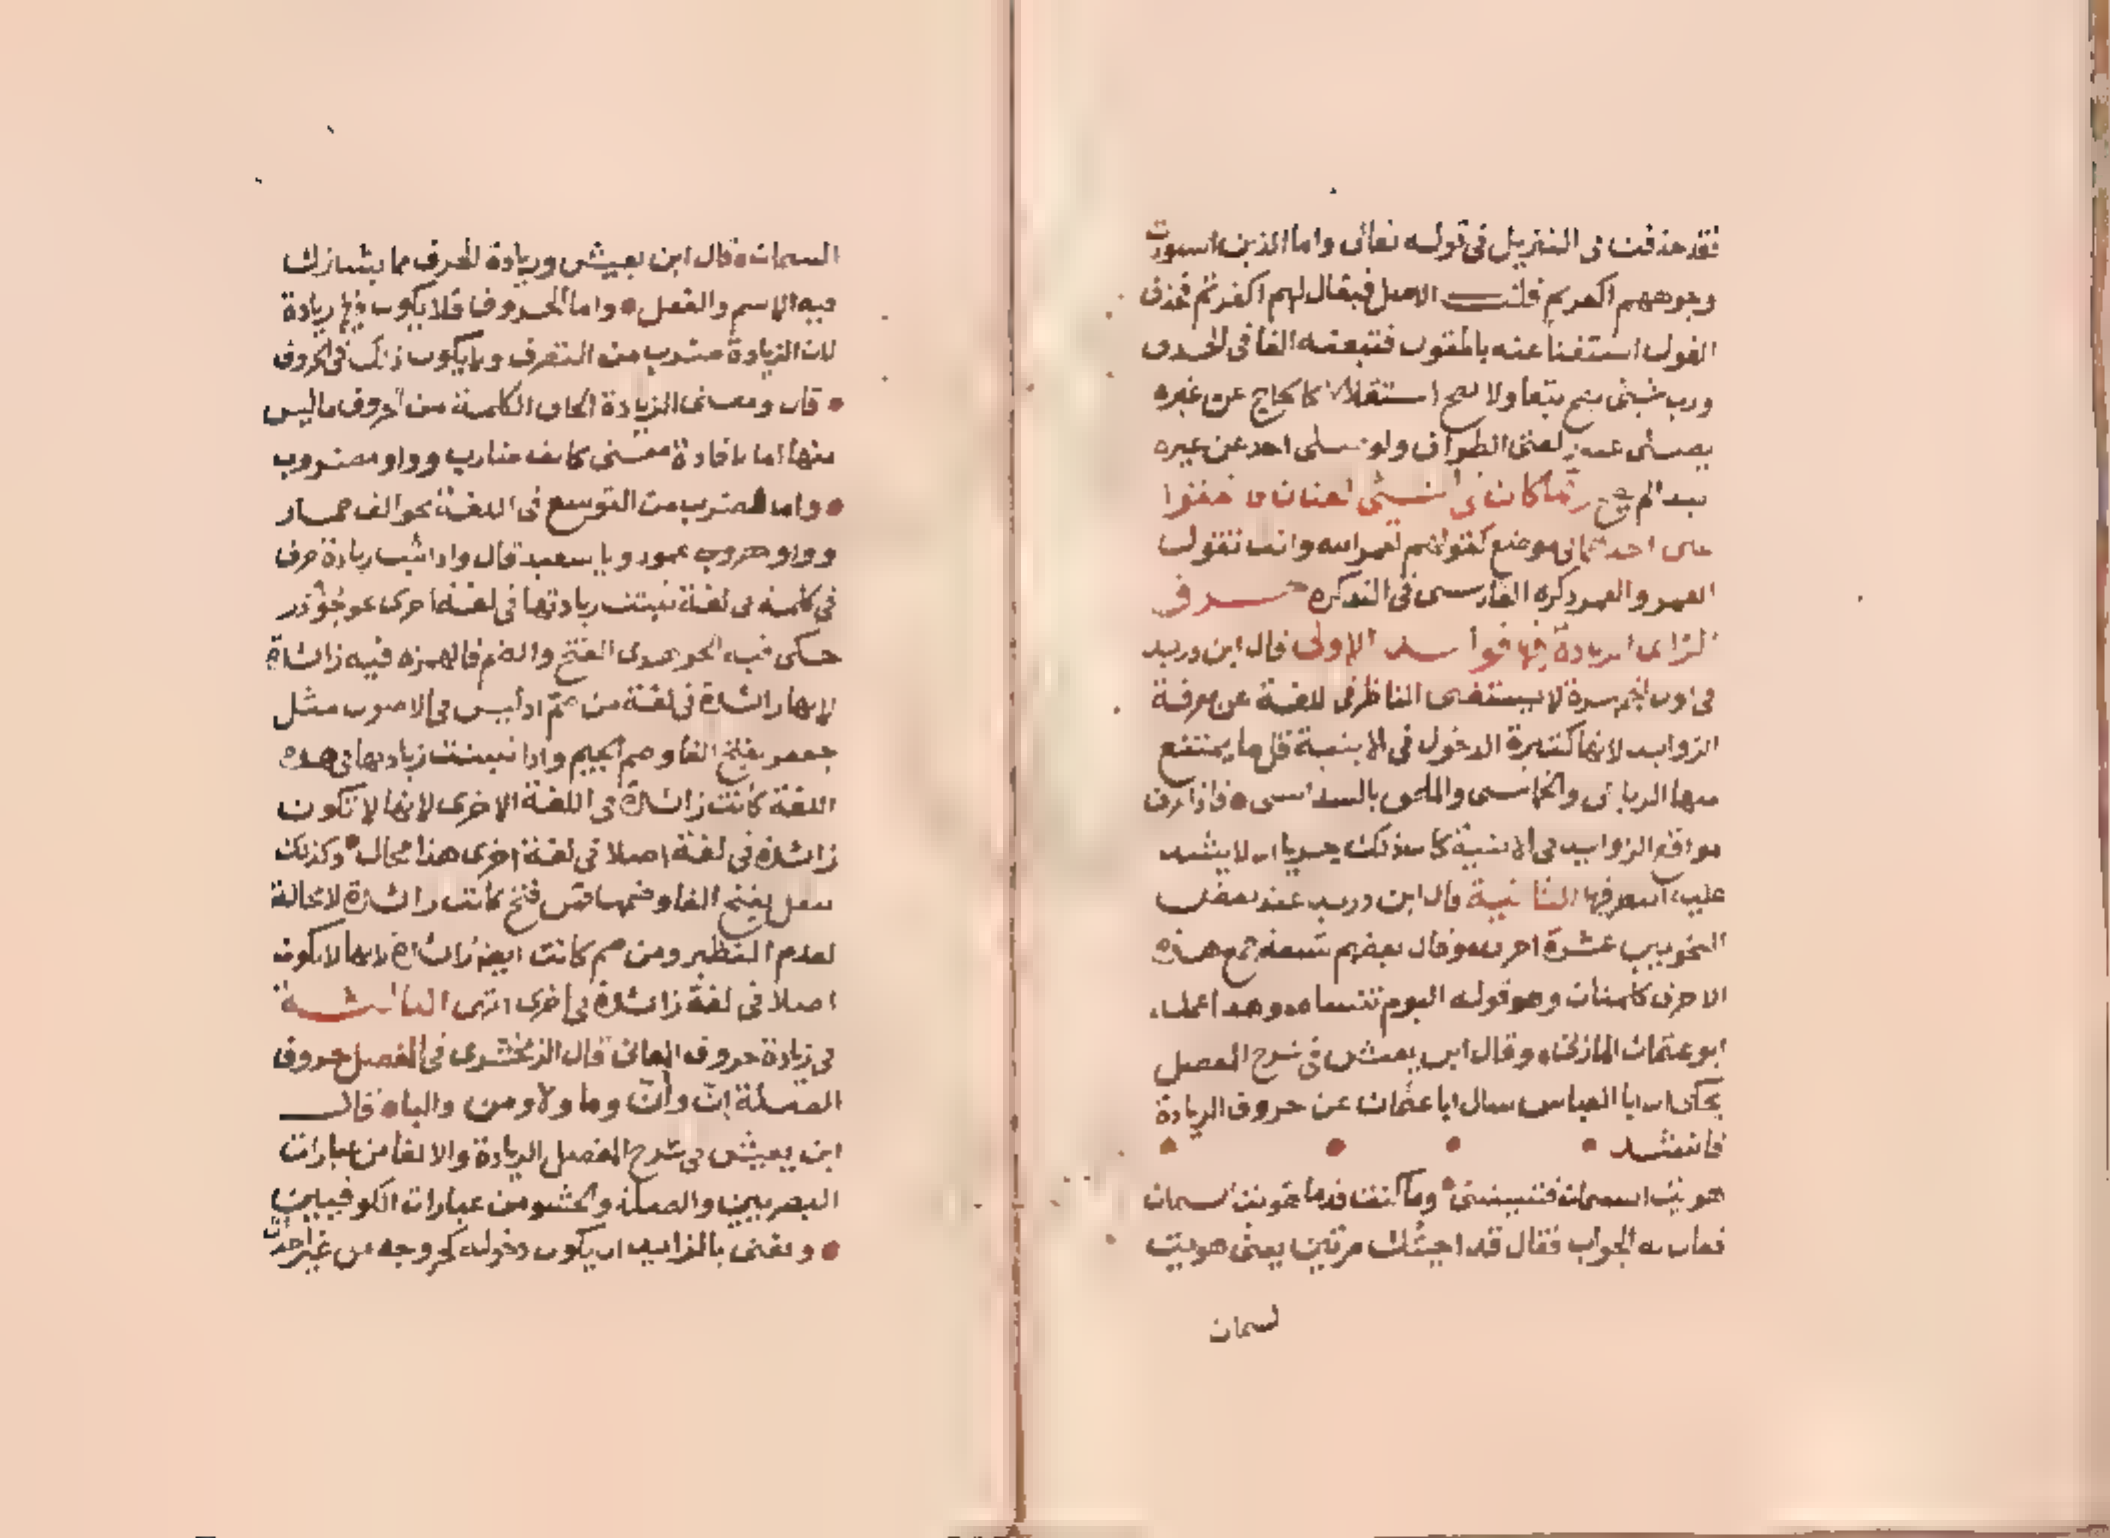 فقد حذفت فى التنزيل فى قوله تعالى واما الذين اسودت
وجوههم اكفرتم قلت الاصل فيقال لهم اكفرتم فحذف
القول استغنا عنه بالمقول فتبعته الفا فى الحذف
ورب شيئى يصح تبعا ولا يصح استقلالا كالحاج عن غيره
يصلى عنه ركعتى الطواف ولو صلى احد عن غيره
ابتدا لم يصح ربما كان فى الشئى لغتان فاتفقوا
على احداهما فى موضع كقولهم لعمر الله وانت تقول
العمر والعمر ذكره الفارسى فى التذكره حرف
الزاى الزيادة فيها فوائد الاولى قال ابن دريد
فى اول الجمهرة لا يستغنى الناظر فى اللغة عن معرفة
الزوايد لانها كثيرة الدخول فى الابنية قل ما يمتنع
منها الرباعى والخماسى والملحق بالسداسى فاذا عرف
مواقع الزوايد فى الابنية كان ذلك حريا ان لا يشذ
عليه النظر فيها الثانية قال ابن دريد عند بعض
النحويين عشرة احرف وقال بعضهم تسعة تجمع هذه
الاحرف كلمتان وهو قوله اليوم تنساه وهذا عمله
ابو عثمان المازنى وقال ابن يعيش فى شرح المفصل
يحكى ان ابا العباس سال ابا عثمان عن حروف الزيادة
فانشد
هويت السمان فشيبننى وما كنت قدما هويت السمان
فقال له الجواب فقال قد اجبتك مرتين يعنى هويت
السمان
السمان قال ابن يعيش وزيادة الحرف مما يشارك
فيه الاسم والفعل واما الحروف فلا يكون فيها زيادة
لان الزيادة ضرب من التصرف ولا يكون ذلك فى الحروف
قال ومعنى الزيادة الحاق الكلمة من الحروف ما ليس
منها اما لافادة معنى كالف ضارب وواو مضروب
واما لضرب من التوسع فى اللغة نحو الف حمار
وواو عمود ويا سعيد قال واذا ثبت زيادة حرف
فى كلمة فى لغة ثبتت زيادتها فى لغة اخرى نحو جؤذر
حكى فيه الجوهرى الفتح والضم فالهمزه فيه زائدة
لانها زائدة فى لغة من ضم اذ ليس فى الاصول مثل
جعفر بفتح الفا وضم الجيم واذا ثبتت زيادتها فى هذه
اللغة كانت زائدة فى اللغة الاخرى لانها لا تكون
زائدة فى لغة اصلا فى لغة اخرى هذا محال وكذلك
تتفل بفتح الفا وضمها فمن فتح كانت زائدة لا محالة
لعدم النظير ومن ضم كانت ايضا زائدة لانها لا تكون
اصلا فى لغة زائدة فى اخرى انتهى الثالثة
فى زيادة حروف المعانى قال الزمخشرى فى المفصل حروف
الصلة إنّ وأنّ وما ولا ومن والباء قال
ابن يعيش فى شرح المفصل الزيادة والالغا من عبارات
البصريين والصلة والحشو من عبارات الكوفيين
ونعنى بالزايد ان يكون دخوله كخروجه من غير احداث